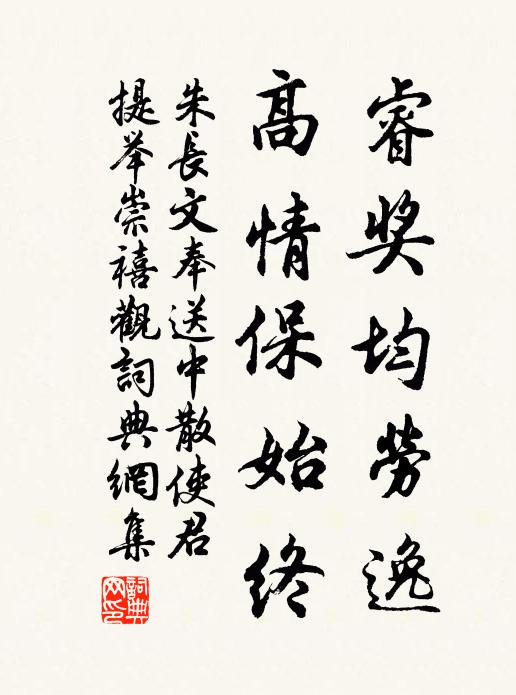 睿奬均勞逸
高情保始終
朱長文奉送中散使君
提举崇禧觀詞典網集
詞典网印